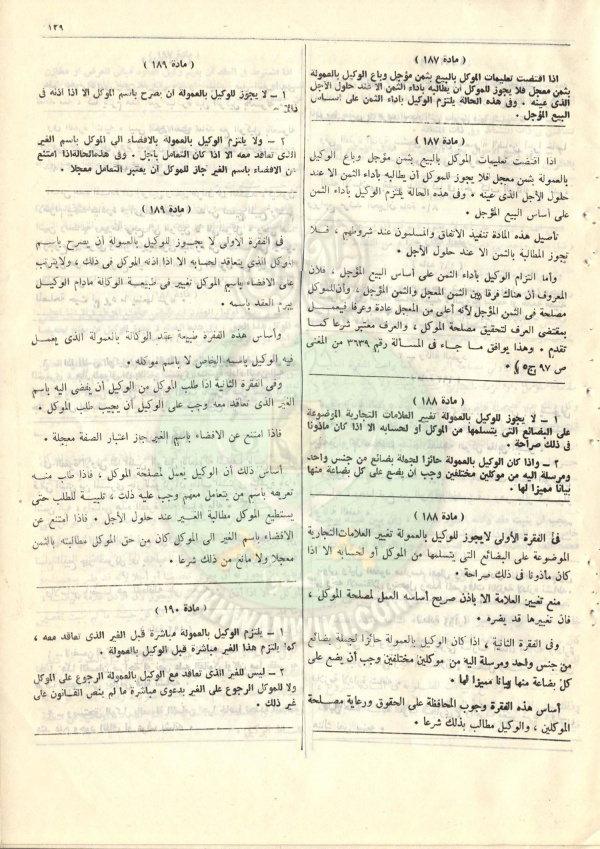 ١٣٩
( مادة ١٨٧ )
اذا اقتضت تعليمات الموكل بالبيع بثمن مؤجل وباع الوكيل بالعمولة
بثمن معجل فلا يجوز للموكل أن يطالبه بأداء الثمن الا عند حلول الأجل
الذى عينه . وفى هذه الحالة يلتزم الوكيل بأداء الثمن على أساس
البيع المؤجل .
( مادة ١٨٧ )
اذا اقتضت تعليمات الموكل بالبيع بثمن مؤجل وباع الوكيل
بالعمولة بثمن معجل فلا يجوز للموكل أن يطالبه بأداء الثمن الا عند
حلول الأجل الذى عينه . وفى هذه الحالة يلتزم الوكيل بأداء الثمن
على أساس البيع المؤجل .
تأصيل هذه المادة تنفيذ الاتفاق والمسلمون عند شروطهم ، فلا
تجوز المطالبة بالثمن الا عند حلول الأجل .
وأما التزام الوكيل بأداء الثمن على أساس البيع المؤجل ، فلأن
المعروف أن هناك فرقا بين الثمن المعجل والثمن المؤجل ، وأن للموكل
مصلحة فى الثمن المؤجل لأنه أعلى من المعجل عادة وعرفا فيعمل
بمقتضى العرف لتحقيق مصلحة الموكل ، والعرف معتبر شرعا كما
تقدم . وهذا يوافق ما جاء فى المسألة رقم ٣٦٣٩ من المغنى
ص ٩٧ ج ٥ .
( مادة ١٨٨ )
١ – لا يجوز للوكيل بالعمولة تغيير العلامات التجارية الموضوعة
على البضائع التى يتسلمها من الموكل أو لحسابه الا اذا كان مأذونا
فى ذلك صراحة .
٢ – واذا كان الوكيل بالعمولة حائزا لجملة بضائع من جنس واحد
ومرسلة اليه من موكلين مختلفين وجب أن يضع على كل بضاعة منها
بيانا مميزا لها .
( مادة ١٨٨ )
فى الفقرة الأولى لا يجوز للوكيل بالعمولة تغيير العلامات التجارية
الموضوعة على البضائع التى يتسلمها من الموكل أو لحسابه الا اذا
كان مأذونا فى ذلك صراحة .
منع تغيير العلامة الا باذن صريح أساسه العمل لمصلحة الموكل ،
فان تغييرها قد يضره .
وفى الفقرة الثانية ، اذا كان الوكيل بالعمولة حائزا لجملة بضائع
من جنس واحد ومرسلة اليه من موكلين مختلفين وجب أن يضع على
كل بضاعة منها بيانا مميزا لها .
أساس هذه الفقرة وجوب المحافظة على الحقوق ورعاية مصلحة
الموكلين ، والوكيل مطالب بذلك شرعا .
( مادة ١٨٩ )
١ – لا يجوز للوكيل بالعمولة أن يصرح باسم الموكل الا اذا أذنه فى
ذلك .
٢ – ولا يلتزم الوكيل بالعمولة بالافضاء الى الموكل باسم الغير
الذى تعاقد معه الا اذا كان التعامل بأجل . وفى هذه الحالة اذا امتنع
عن الافضاء باسم الغير جاز للموكل أن يعتبر التعامل معجلا .
( مادة ١٨٩ )
فى الفقرة الاولى لا يجوز للوكيل بالعمولة أن يصرح باسم
الموكل الذى يتعاقد لحسابه الا اذا أذنه الموكل فى ذلك ، ولا يترتب
على الافضاء باسم الموكل تغيير فى طبيعة الوكالة مادام الوكيل
يبرم العقد باسمه .
وأساس هذه الفقرة طبيعة عقد الوكالة بالعمولة الذى يعمل
فيه الوكيل باسمه الخاص لا باسم موكله .
وفى الفقرة الثانية اذا طلب الموكل من الوكيل أن يفضى اليه باسم
الغير الذى تعاقد معه وجب على الوكيل أن يجيب طلب الموكل .
فاذا امتنع عن الافضاء باسم الغير جاز اعتبار الصفة معجلة .
أساس ذلك أن الوكيل يعمل لمصلحة الموكل ، فاذا طلب منه
تعريفه باسم من يتعامل معهم وجب عليه ذلك ، تلبية للطلب حتى
يستطيع الموكل مطالبة الغير عند حلول الأجل . فاذا امتنع عن
الافضاء باسم الغير الى الموكل كان من حق الموكل مطالبته بالثمن
معجلا ولا مانع من ذلك شرعا .
( مادة ١٩٠ )
١ – يلتزم الوكيل بالعمولة مباشرة قبل الغير الذى تعاقد معه ،
كما يلتزم هذا الغير مباشرة قبل الوكيل بالعمولة .
٢ – ليس للغير الذى تعاقد مع الوكيل بالعمولة الرجوع على الموكل
ولا للموكل الرجوع على الغير بدعوى مباشرة ما لم ينص القانون على
غير ذلك .